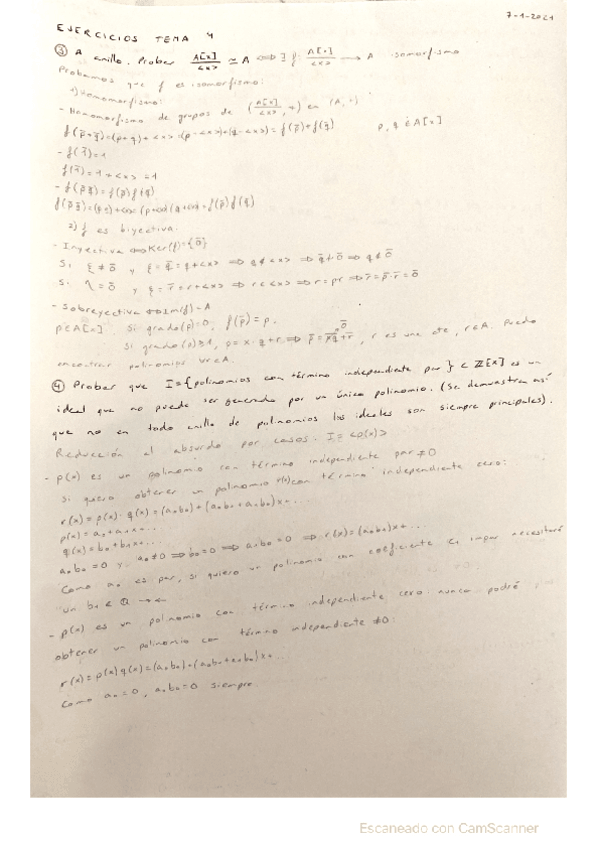 7-1-2021
EJERCICIOS TEMA 4
③ A anillo. Probar A[x]/<x> ≃ A ⟺ ∃ f: A[x]/<x> → A isomorfismo
Probamos que f es isomorfismo:
1) Homomorfismo:
- Homomorfismo de grupos de (A[x]/<x>, +) en (A, +)
p, q ∈ A[x]
- f(1̄)=1
f(1̄)=1+<x>=1
- f(p̄q̄)=f(p̄)f(q̄)
2) f es biyectiva.
- Inyectiva ⟺ Ker(f)={0̄}
- Sobreyectiva ⟺ Im(f)=A
p∈A[x]. Si grado(p)=0, f(p̄)=p.
Si grado(p)≥1, p=x·q+r, r es una cte, r∈A. Puedo
encontrar polinomios ∀r∈A.
④ Probar que I={polinomios con término independiente par} ⊂ ℤ[x] es un
ideal que no puede ser generado por un único polinomio. (Se demuestra así
que no en todo anillo de polinomios los ideales son siempre principales).
Reducción al absurdo por casos. I=<p(x)>
- p(x) es un polinomio con término independiente par ≠0
Si quiero obtener un polinomio r(x) con término independiente cero:
r(x)=p(x)·q(x)=(a₀b₀)+(a₀b₁+a₁b₀)x+...
p(x)=a₀+a₁x+...
q(x)=b₀+b₁x+...
a₀b₀=0 y a₀≠0 ⟹ b₀=0 ⟹ a₁b₀=0 ⟹ r(x)=(a₀b₁)x+...
Como a₀ es par, si quiero un polinomio con coeficiente c₁ impar necesitaré
un b₁∈ℚ →←
- p(x) es un polinomio con término independiente cero. nunca podré
obtener un polinomio con término independiente ≠0:
r(x)=p(x)q(x)=(a₀b₀)+(a₀b₁+a₁b₀)x+...
Como a₀=0, a₀b₀=0 siempre.
Escaneado con CamScanner